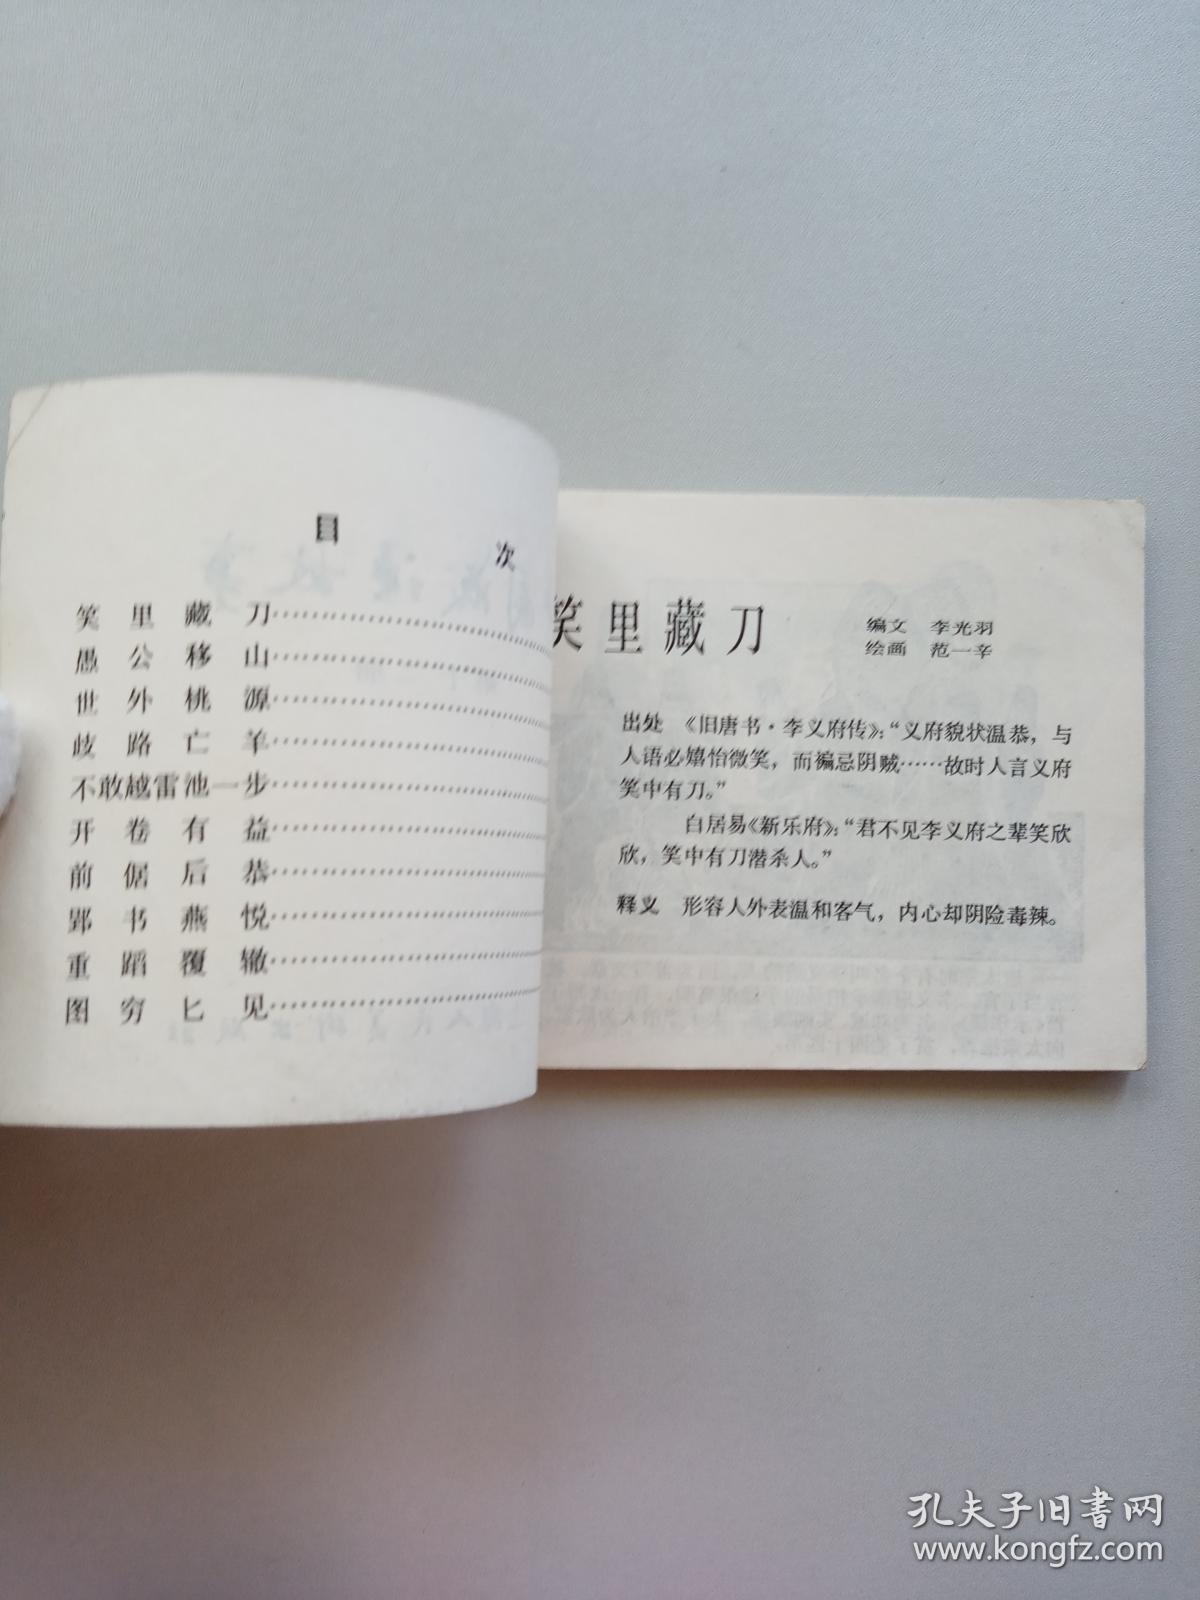 目 次
笑里藏刀
愚公移山
世外桃源
歧路亡羊
不敢越雷池一步
开卷有益
前倨后恭
郢书燕悦
重蹈覆辙
图穷匕见
笑里藏刀
编文 李光羽
绘画 范一辛
出处 《旧唐书·李义府传》:“义府貌状温恭，与
人语必嬉怡微笑，而褊忌阴贼……故时人言义府
笑中有刀。”
白居易《新乐府》:“君不见李义府之辈笑欣
欣，笑中有刀潜杀人。”
释义 形容人外表温和客气，内心却阴险毒辣。
孔夫子旧书网
www.kongfz.com